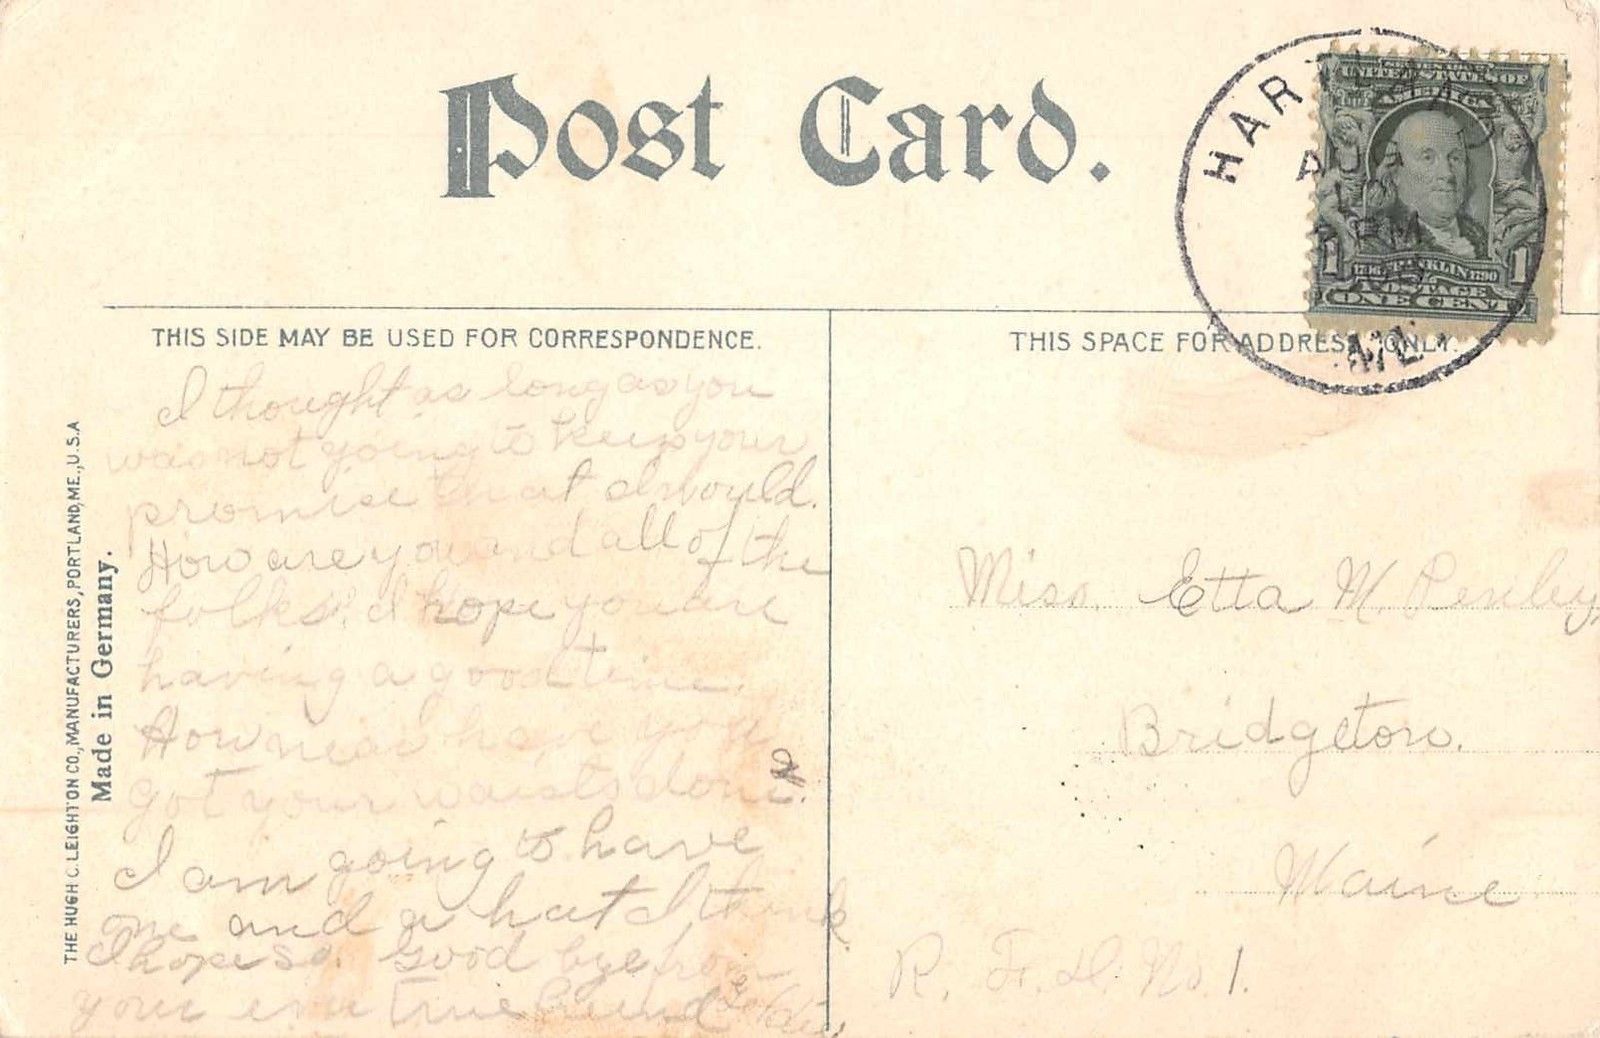 Post Card.
SERIES 1902
UNITED STATES OF
AMERICA
FRANKLIN 1790
POSTAGE
1 1
ONE CENT
AUG
PM
ME.
THIS SIDE MAY BE USED FOR CORRESPONDENCE.
THIS SPACE FOR ADDRESS ONLY.
THE HUGH C. LEIGHTON CO., MANUFACTURERS, PORTLAND, ME., U.S.A
Made in Germany.
I thought as long as you
was not going to keep your
promise that I would.
How are you and all of the
folks? I hope you are
having a good time.
How near have you
got your waists done?
I am going to have
one and a hat I think
I hope so. Good bye from
your ever true friend
Miss. Etta M.
Bridgeton.
Maine
R. F. D. No 1.